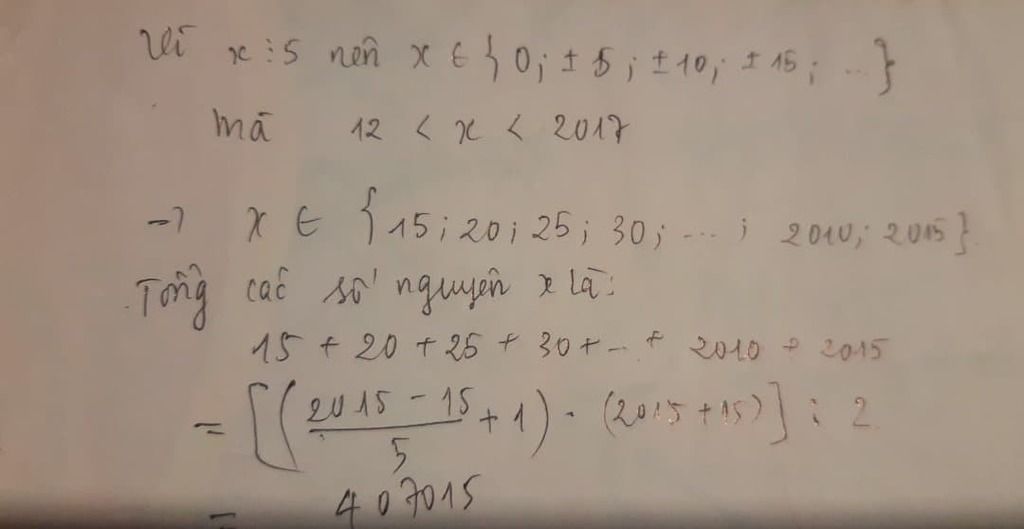 Vì x ⋮ 5 nên x ∈ { 0; ± 5; ± 10; ± 15; ... }
mà 12 < x < 2017
→ x ∈ { 15; 20; 25; 30; ... ; 2010; 2015 }
Tổng các số nguyên x là:
15 + 20 + 25 + 30 + ... + 2010 + 2015
= [ ( (2015 - 15)/5 + 1 ) . (2015 + 15) ] : 2
= 407015